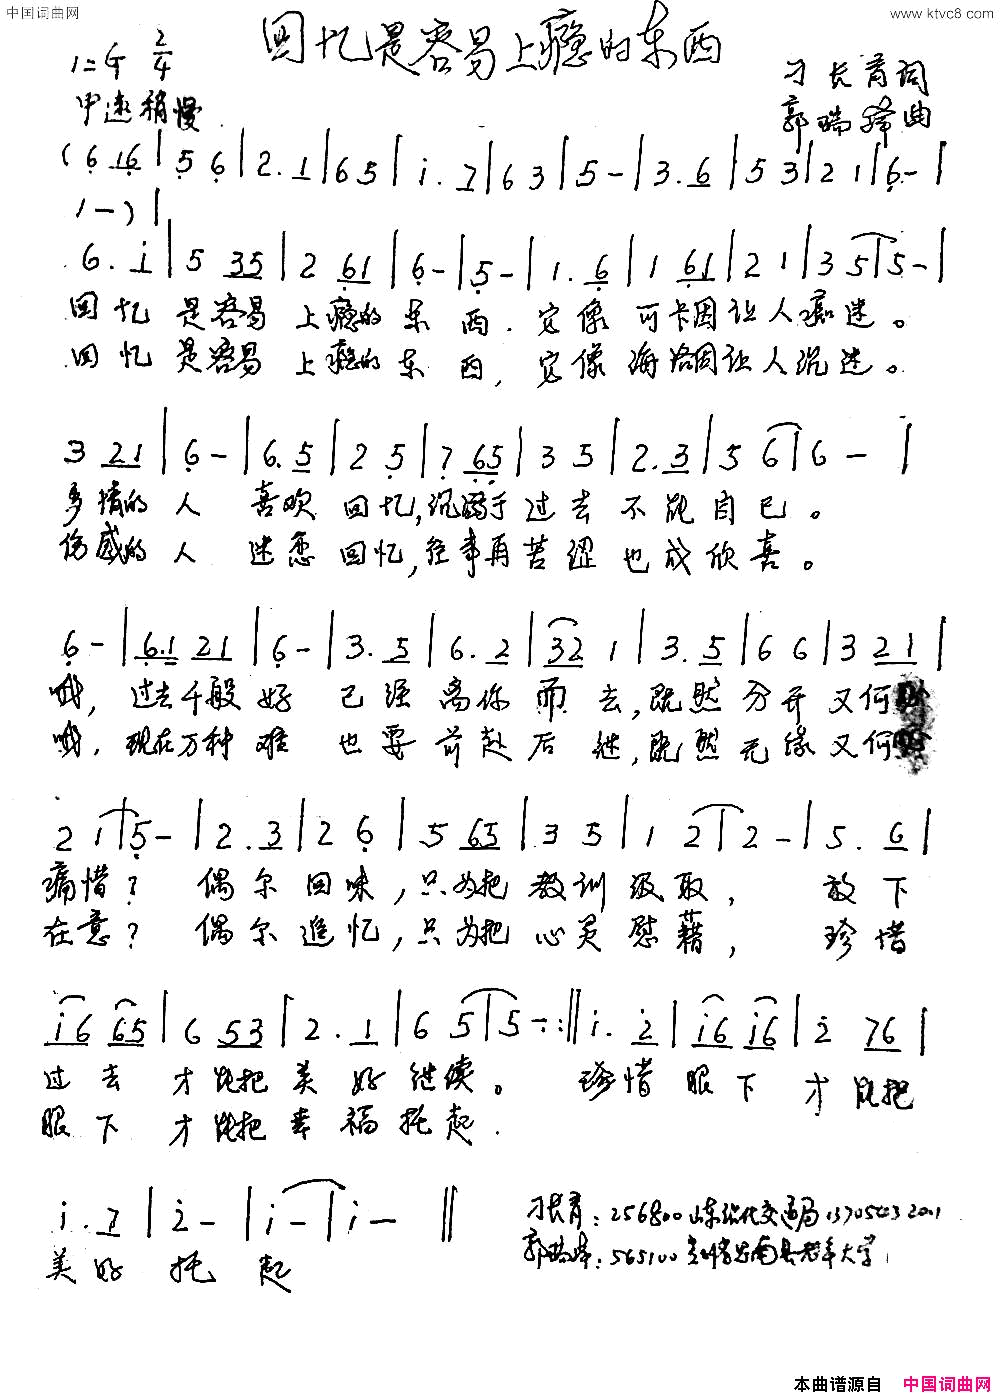 中国词曲网
www.ktvc8.com
回忆是容易上瘾的东西
1=G 2/4
中速稍慢
刁长育词
郭瑞 曲
(6 16 | 5 6 | 2. 1 | 6 5 | i. 7 | 6 3 | 5 - | 3. 6 | 5 3 | 2 1 | 6 - |
1 -) |
6. i | 5 35 | 2 61 | 6 - | 5 - | 1. 6 | 1 61 | 2 1 | 3 5 | 5 - |
回忆 是容易 上瘾的 东 西. 它像 可卡因让人痴迷。
回忆 是容易 上瘾的 东 西, 它像 海洛因让人沉迷。
3 21 | 6 - | 6. 5 | 2 5 | 7 65 | 3 5 | 2. 3 | 5 6 | 6 - |
多情的 人 喜欢 回忆,沉溺于过去不能自已。
伤感的 人 迷恋 回忆,往事再苦涩也成欣喜。
6 - | 6.1 21 | 6 - | 3. 5 | 6. 2 | 32 1 | 3. 5 | 6 6 | 3 21 |
哦, 过去千般好 已经离你而去,既然分开又何
哦, 现在万种难 也要前赴后继,既然无缘又何
2 1 | 5 - | 2. 3 | 2 6 | 5 65 | 3 5 | 1 2 | 2 - | 5. 6 |
痛惜? 偶尔回味,只为把教训吸取, 放下
在意? 偶尔追忆,只为把心灵慰藉, 珍惜
i6 65 | 6 53 | 2. 1 | 6 5 | 5 - :|| i. 2 | i6 i6 | 2 76 |
过去 才能把美好继续。 珍惜眼下才能把
眼下 才能把幸福托起.
i. 7 | 2 - | i - | i - ||
美好 托 起
刁长育:256800山东沾化交通局
郭瑞:565100 老年大学
本曲谱源自 中国词曲网